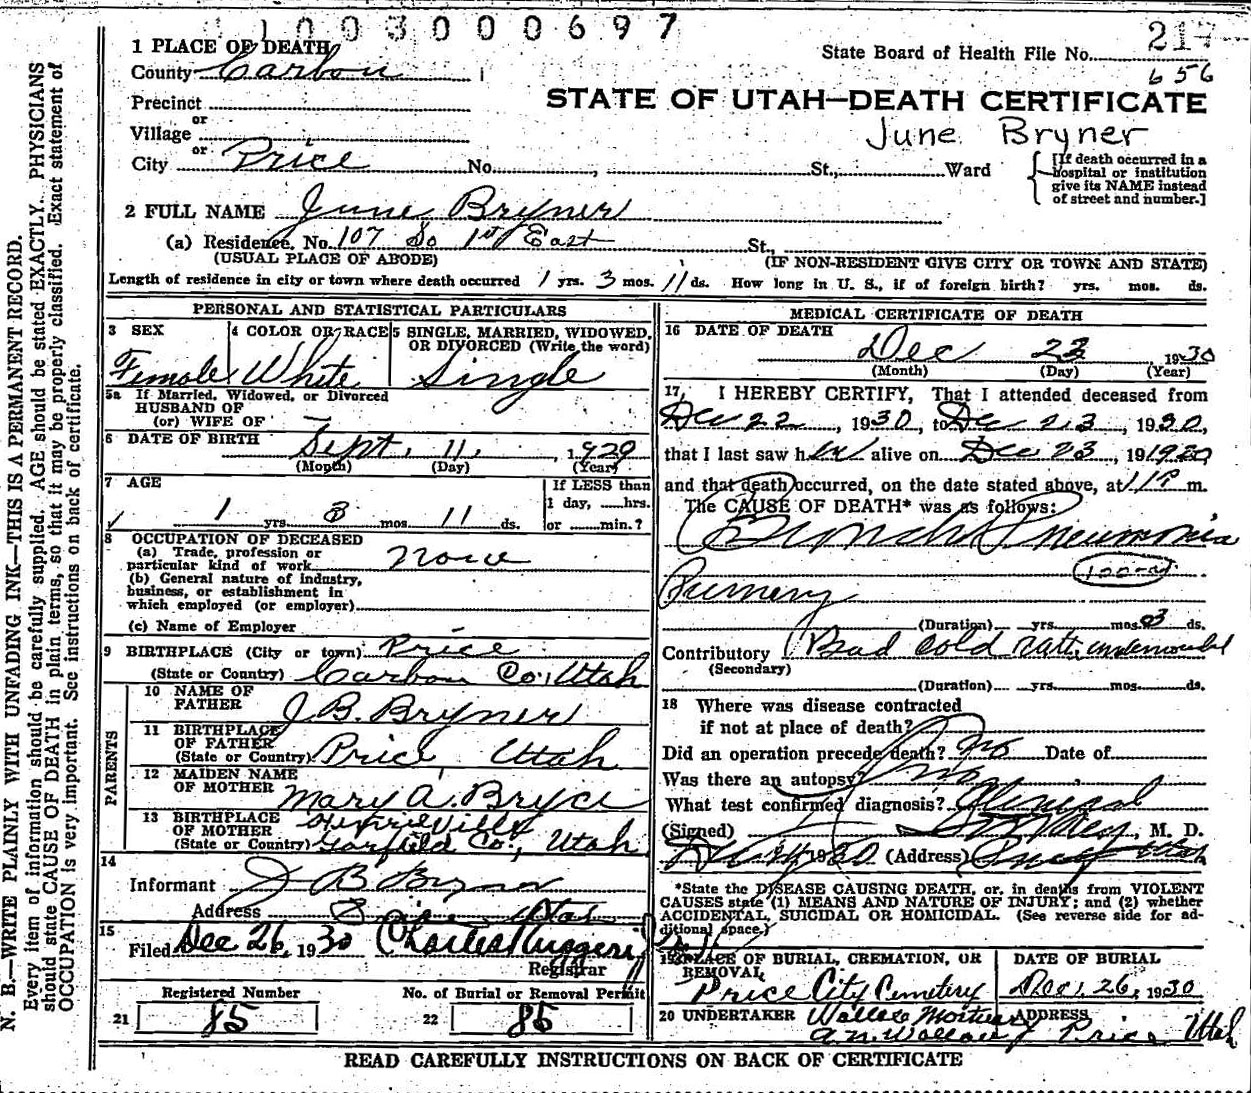 1003000697
1 PLACE OF DEATH
217
County Carbon
State Board of Health File No.
656
Precinct
or
STATE OF UTAH—DEATH CERTIFICATE
Village
June Bryner
or
City Price No. , St., Ward
[If death occurred in a
hospital or institution
give its NAME instead
of street and number.]
2 FULL NAME June Bryner
(a) Residence, No. 107 So 1st East St.,
(USUAL PLACE OF ABODE) (IF NON-RESIDENT GIVE CITY OR TOWN AND STATE)
Length of residence in city or town where death occurred 1 yrs. 3 mos. 11 ds. How long in U. S., if of foreign birth? yrs. mos. ds.
PERSONAL AND STATISTICAL PARTICULARS
3 SEX
Female
4 COLOR OR RACE
White
5 SINGLE, MARRIED, WIDOWED,
OR DIVORCED (Write the word)
Single
5a If Married, Widowed, or Divorced
HUSBAND OF
(or) WIFE OF
6 DATE OF BIRTH
Sept. 11, 1929
(Month) (Day) (Year)
7 AGE
1 yrs. 3 mos. 11 ds.
If LESS than
1 day, hrs.
or min.?
8 OCCUPATION OF DECEASED
(a) Trade, profession or
particular kind of work none
(b) General nature of industry,
business, or establishment in
which employed (or employer)
(c) Name of Employer
9 BIRTHPLACE (City or town) Price
(State or Country) Carbon Co., Utah
PARENTS
10 NAME OF
FATHER J. B. Bryner
11 BIRTHPLACE
OF FATHER
(State or Country) Price, Utah
12 MAIDEN NAME
OF MOTHER Mary A. Bryce
13 BIRTHPLACE
OF MOTHER
(State or Country) Garfield Co., Utah
14
Informant J B Bryner
Address Price Utah
15
Filed Dec 26, 1930 Charles Ruggeri
Registrar
Registered Number
21 85
No. of Burial or Removal Permit
22 85
MEDICAL CERTIFICATE OF DEATH
16 DATE OF DEATH
Dec 23 1930
(Month) (Day) (Year)
17, I HEREBY CERTIFY, That I attended deceased from
Dec 22, 1930, to Dec 23, 1930,
that I last saw her alive on Dec 23, 191930
and that death occurred, on the date stated above, at 11P m.
The CAUSE OF DEATH* was as follows:
Broncho Pneumonia
Primary
(Duration) yrs. mos. 3 ds.
Contributory Bad cold
(Secondary)
(Duration) yrs. mos. ds.
18 Where was disease contracted
if not at place of death?
Did an operation precede death? no Date of
Was there an autopsy? no
What test confirmed diagnosis?
(Signed) , M. D.
1930 (Address) Price Utah
*State the DISEASE CAUSING DEATH, or, in deaths from VIOLENT
CAUSES state (1) MEANS AND NATURE OF INJURY; and (2) whether
ACCIDENTAL, SUICIDAL OR HOMICIDAL. (See reverse side for ad-
ditional space.)
19 PLACE OF BURIAL, CREMATION, OR
REMOVAL
Price City Cemetery
DATE OF BURIAL
Dec. 26, 1930
20 UNDERTAKER Wallace Mortuary
A. N. Wallace
ADDRESS
Price Utah
READ CAREFULLY INSTRUCTIONS ON BACK OF CERTIFICATE
N. B.—WRITE PLAINLY WITH UNFADING INK—THIS IS A PERMANENT RECORD.
Every item of information should be carefully supplied. AGE should be stated EXACTLY. PHYSICIANS
should state CAUSE OF DEATH in plain terms, so that it may be properly classified. Exact statement of
OCCUPATION is very important. See instructions on back of certificate.